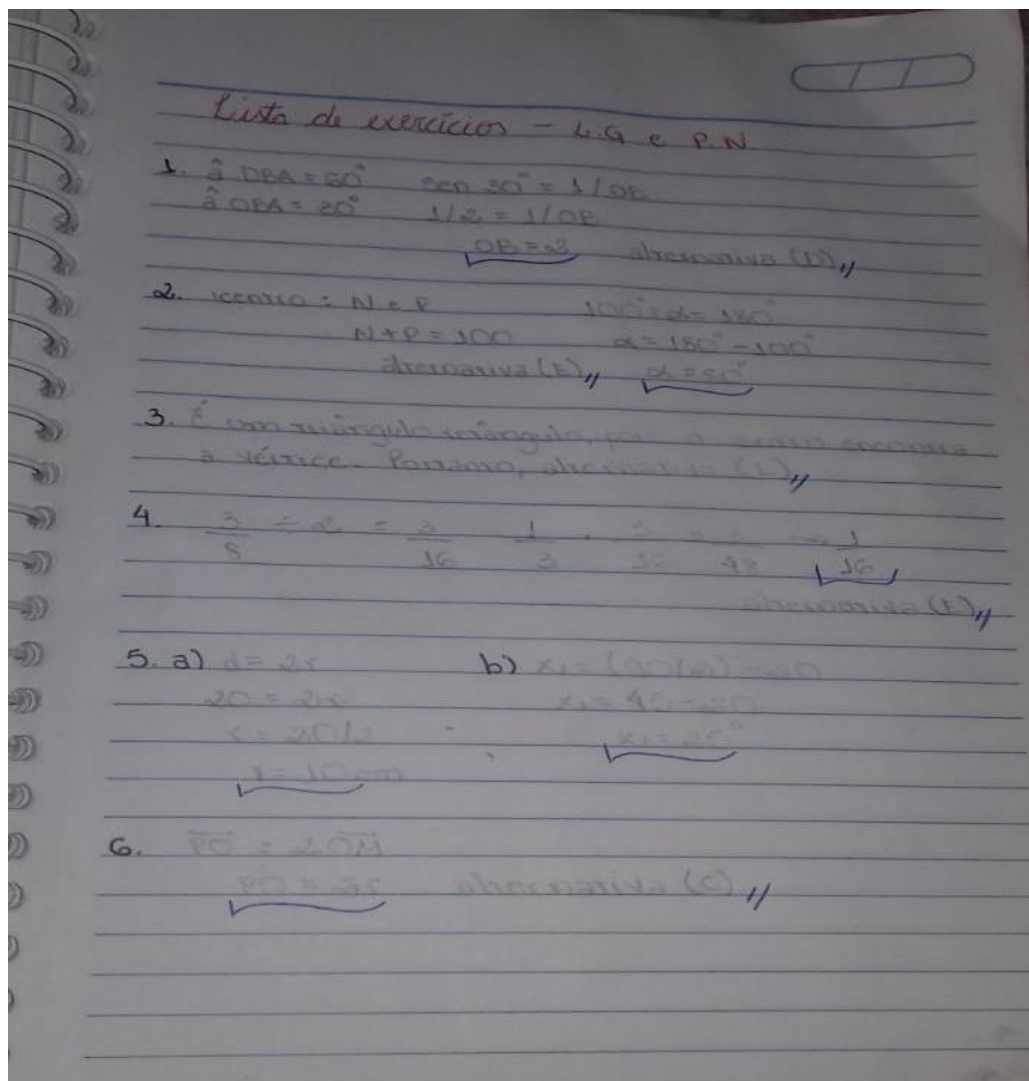 Lista de exercícios - L.G e P.N
1. â DBA = 60° sen 30° = 1/OB
â OBA = 30° 1/2 = 1/OB
OB = 2 alternativa (D)
2. N e P 100° + α = 180°
N + P = 100 α = 180° - 100°
alternativa (E) α = 80°
3. É um triângulo retângulo, pois o encontra
a vértice. Portanto, alternativa (E)
4. 3/8 ÷ 2 = 3/16 1/3 . 3/16 = 3/48 → 1/16
alternativa (E)
5. a) d = 2r b) x₁ = (90/2) - 20
20 = 2r x₁ = 45 - 20
r = 20/2 x₁ = 25°
r = 10 cm
6. PO = 2OM
PO = 2r alternativa (C)